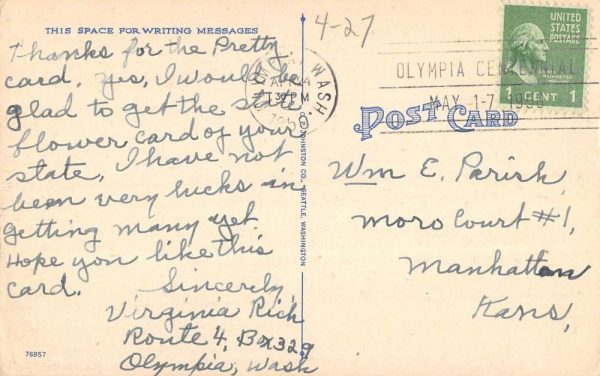 THIS SPACE FOR WRITING MESSAGES
Thanks for the Pretty
card. Yes, I would be
glad to get the state
flower card of your
state, I have not
been very lucks in
getting many yet.
Hope you like this
card.
Sincerely,
Virginia Rich
Route 4, Box 329
Olympia, Wash
76857
JOHNSTON CO., SEATTLE, WASHINGTON
4-27
WASH.
PM
OLYMPIA CENTENNIAL
MAY 1-7
UNITED
STATES
POSTAGE
WASHINGTON
1 CENT 1
POST CARD
Wm E. Parish,
Moro Court #1,
Manhattan
Kans,